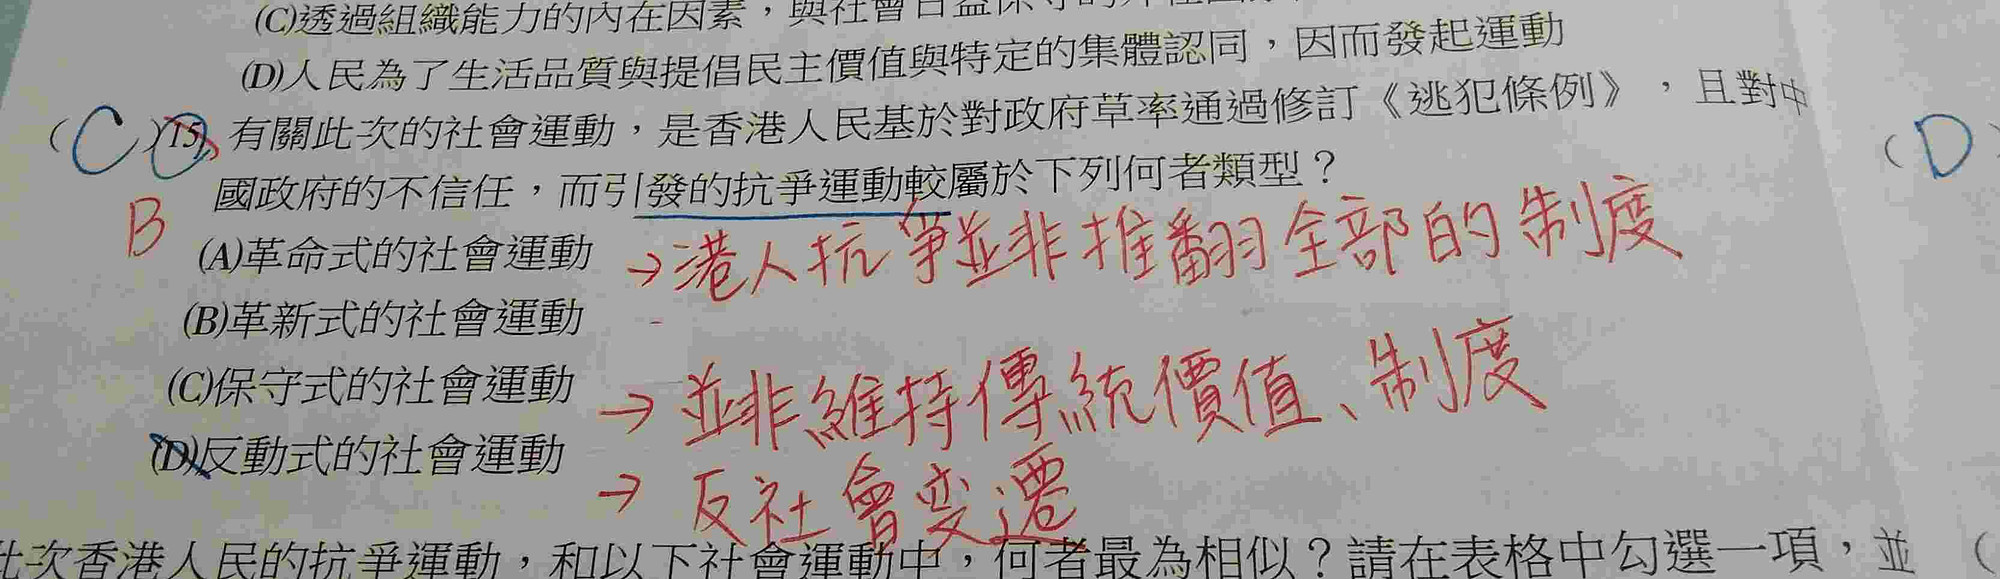 (C)透過組織能力的內在因素，與社會日益保守的外在因
(D)人民為了生活品質與提倡民主價值與特定的集體認同，因而發起運動
( C )15. 有關此次的社會運動，是香港人民基於對政府草率通過修訂《逃犯條例》，且對中
國政府的不信任，而引發的抗爭運動較屬於下列何者類型？
( D )
B
(A)革命式的社會運動 →港人抗爭並非推翻全部的制度
(B)革新式的社會運動
(C)保守式的社會運動 →並非維持傳統價值、制度
(D)反動式的社會運動 →反社會变遷
此次香港人民的抗爭運動，和以下社會運動中，何者最為相似？請在表格中勾選一項，並 (